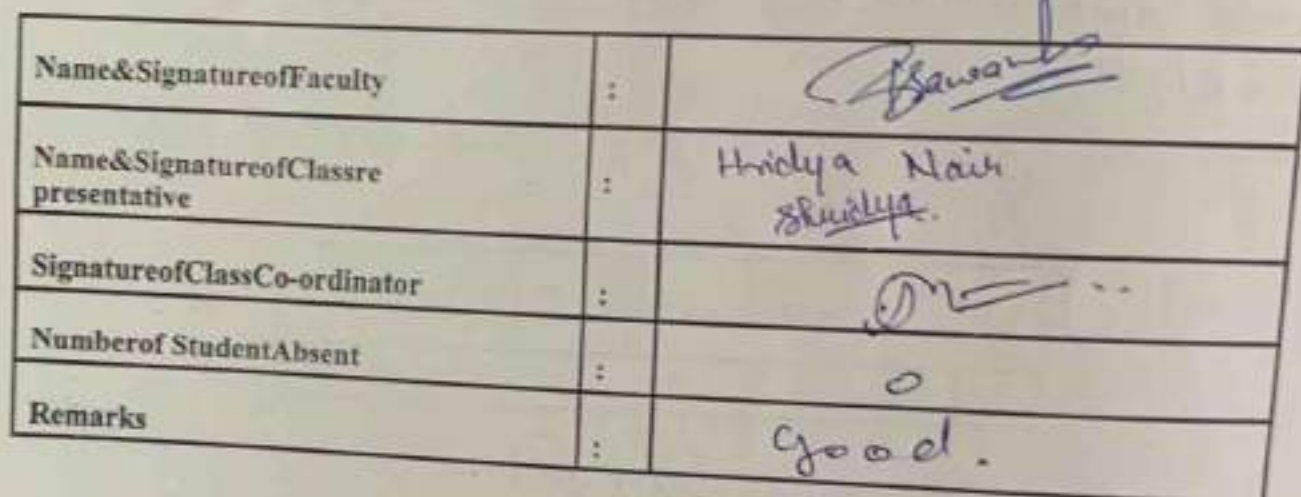 Name&SignatureofFaculty :
Name&SignatureofClassre : Hridya Nair
presentative
SignatureofClassCo-ordinator :
Numberof StudentAbsent : 0
Remarks : Good.